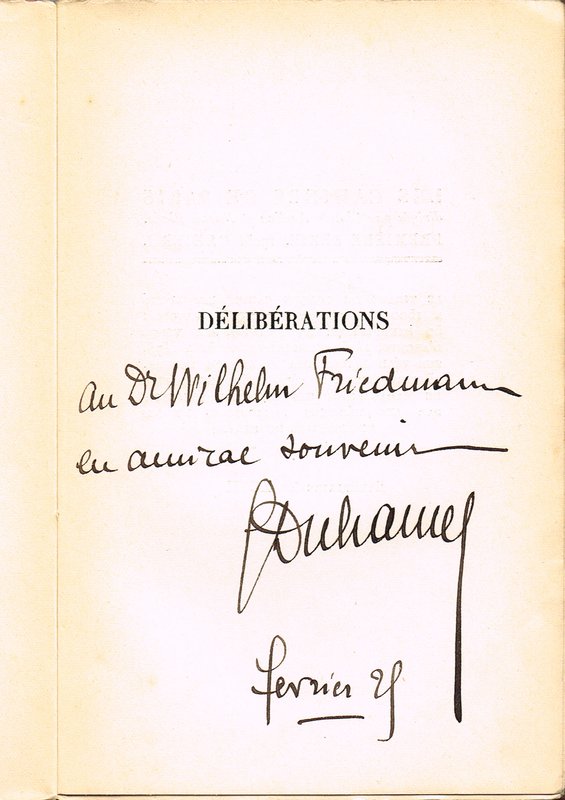 DÉLIBÉRATIONS
au Dr Wilhelm Friedmann
en amical souvenir
GDuhamel
fevrier 25